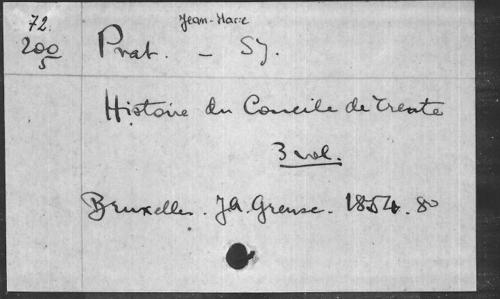 72.
200
5
Jean-Marie
Prat. – SJ.
Histoire du Concile de Trente
3 vol.
Bruxelles. JA. Greuse. 1854. 8º